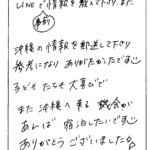 LINEで情報を教えて下さり、また
事前
沖縄の情報を郵送して下さり
参考になり ありがたかったです
子どもたちも大喜びで
また沖縄へ来る機会が
あれば 宿泊したいです
ありがとうございました